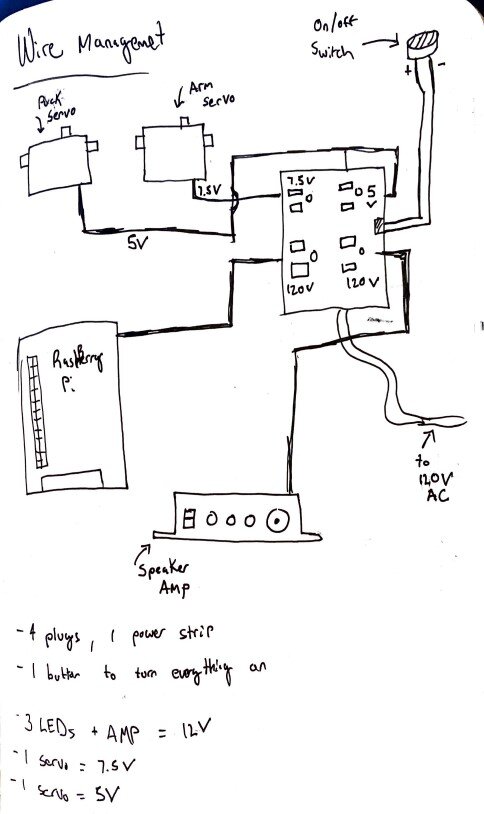 Wire Managemet
On/off
Switch
+ -
Puck
Servo
Arm
Servo
7.5V
7.5V
5
V
5V
120V
120V
Raspberry
Pi
to
120V
AC
Speaker
Amp
- 4 plugs, 1 power strip
- 1 button to turn everything on
- 3 LEDs + AMP = 12V
- 1 servo = 7.5V
- 1 servo = 5V